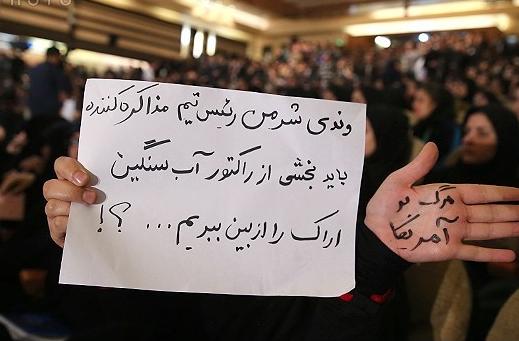 وندی شرمن رئیس تیم مذاکره کننده
باید بخشی از راکتور آب سنگین
اراک را از بین ببریم... ؟!
مرگ بر
آمریکا